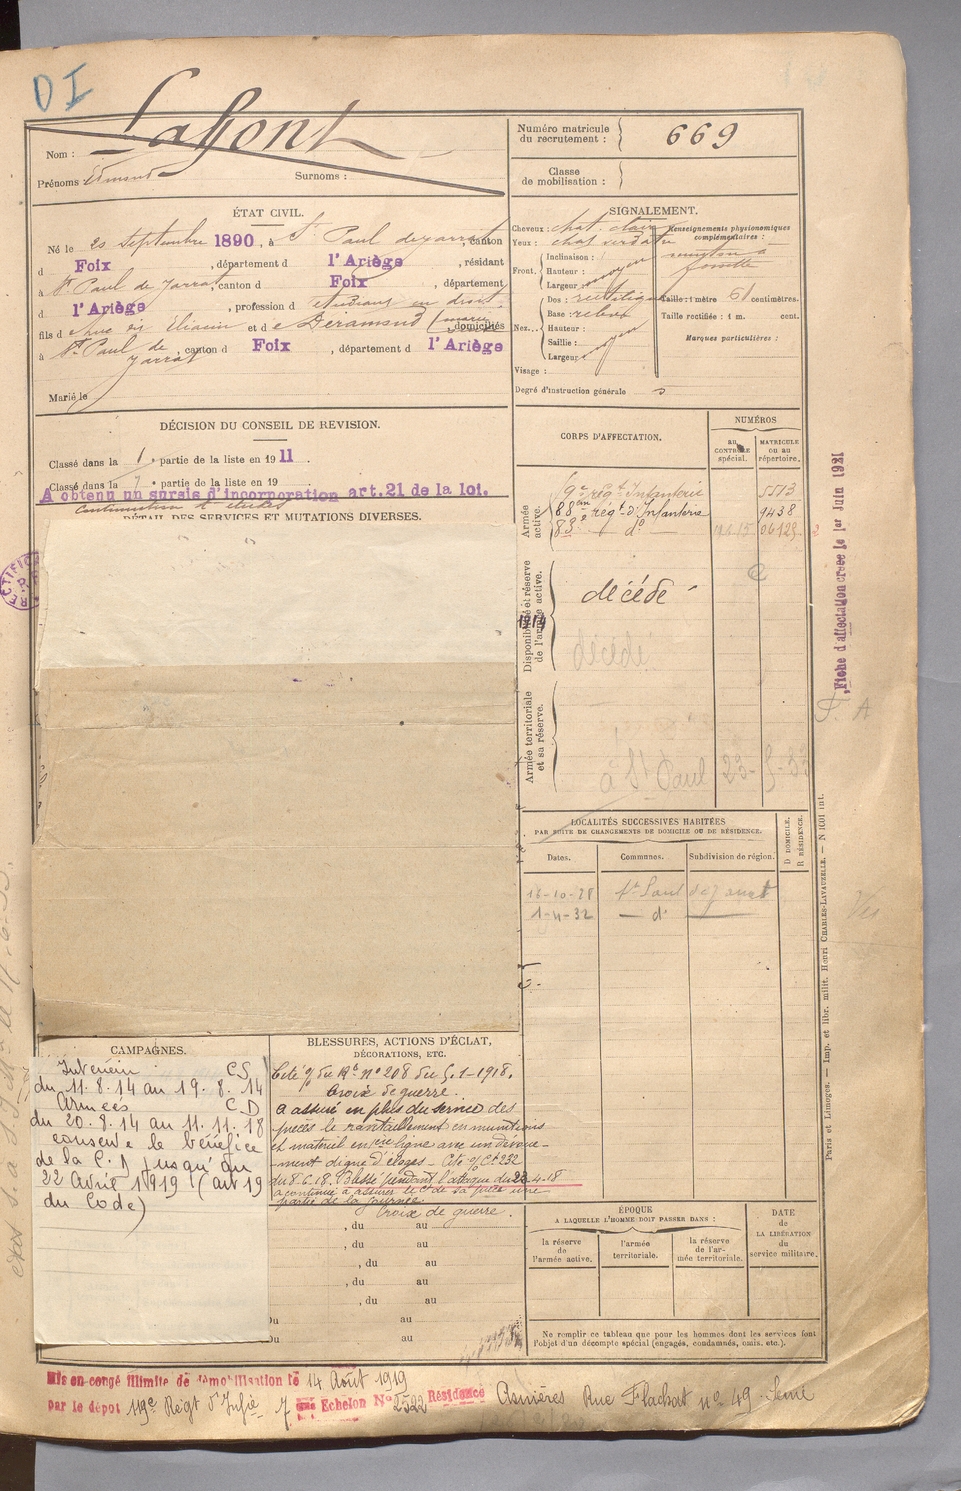 DI
Nom : Lafont
Prénoms Edmond Surnoms :
Numéro matricule du recrutement : 669
Classe de mobilisation :
ÉTAT CIVIL.
Né le 20 septembre 1890, à St Paul de Jarrat, canton
d Foix, département d l'Ariège, résidant
à St Paul de Jarrat, canton d Foix, département
d l'Ariège, profession d étudiant en droit
fils d et d domiciliés
à St Paul de Jarrat, canton d Foix, département d l'Ariège
Marié le
SIGNALEMENT.
Cheveux : chat. clair
Yeux :
Front. Inclinaison :
Hauteur : moyen
Largeur :
Nez. Dos : rectiligne
Base : relevé
Hauteur : moyen
Saillie :
Largeur :
Visage :
Renseignements physionomiques complémentaires :
menton à fossette
Taille : 1 mètre 61 centimètres.
Taille rectifiée : 1 m. cent.
Marques particulières :
Degré d'instruction générale
DÉCISION DU CONSEIL DE REVISION.
Classé dans la 1e partie de la liste en 1911.
Classé dans la partie de la liste en 19
A obtenu un sursis d'incorporation art. 21 de la loi.
DÉTAIL DES SERVICES ET MUTATIONS DIVERSES.
CORPS D'AFFECTATION.
NUMÉROS
au CONTRÔLE spécial.
MATRICULE ou au répertoire.
Armée active.
rég.t Infanterie 5513
88ème rég.t d'Infanterie 9438
83e do
Disponibilité et réserve de l'armée active.
1914
décédé
décédé
Armée territoriale et sa réserve.
à St Paul 23-5-33
Fiche d'affectation créée le 1er Juin 1921
LOCALITÉS SUCCESSIVES HABITÉES
PAR SUITE DE CHANGEMENTS DE DOMICILE OU DE RÉSIDENCE.
Dates. Communes. Subdivision de région. D DOMICILE. R RÉSIDENCE.
16-10-28 St Paul de Jarrat
1-4-32 — do —
CAMPAGNES.
Intérieur CS
du 11.8.14 au 19.8.14
Armées CD
du 20.8.14 au 11.11.18
conserve le bénéfice
de la C.D jusqu'au
22 Avril 1919 (art 19
du Code)
BLESSURES, ACTIONS D'ÉCLAT,
DÉCORATIONS, ETC.
Cité no 208 du 5.1.1918.
Croix de guerre.
a assuré en plus du service des
pièces le ravitaillement en munitions
et matériel en 1ère ligne avec un dévoue-
ment digne d'éloges — Cité 232
du 8.6.18. Blessé pendant l'attaque du 23.4.18
a continué à assurer le de sa pièce une
partie de la journée.
Croix de guerre.
, du au
, du au
, du au
, du au
, du au
Du au
Du au
ÉPOQUE
A LAQUELLE L'HOMME DOIT PASSER DANS :
la réserve de l'armée active.
l'armée territoriale.
la réserve de l'armée territoriale.
DATE de LA LIBÉRATION du service militaire.
Ne remplir ce tableau que pour les hommes dont les services font
l'objet d'un décompte spécial (engagés, condamnés, omis, etc.).
Paris et Limoges. — Imp. et libr. milit. Henri CHARLES-LAVAUZELLE. — N 1001 int.
Mis en congé illimité de démobilisation le 14 Août 1919
par le dépôt 119e Régt d'Infie 7 Echelon No 2522 Résidence Asnières Rue Flachat no 49 Seine